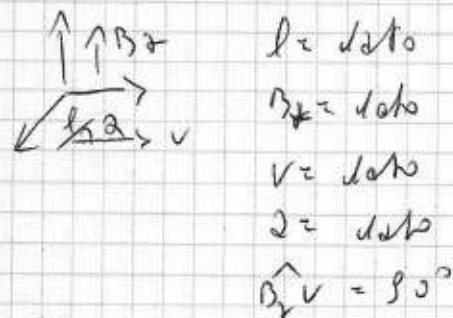 Bz
l = dato
α
v
Bz = dato
v = dato
α = dato
Bz v = 90°